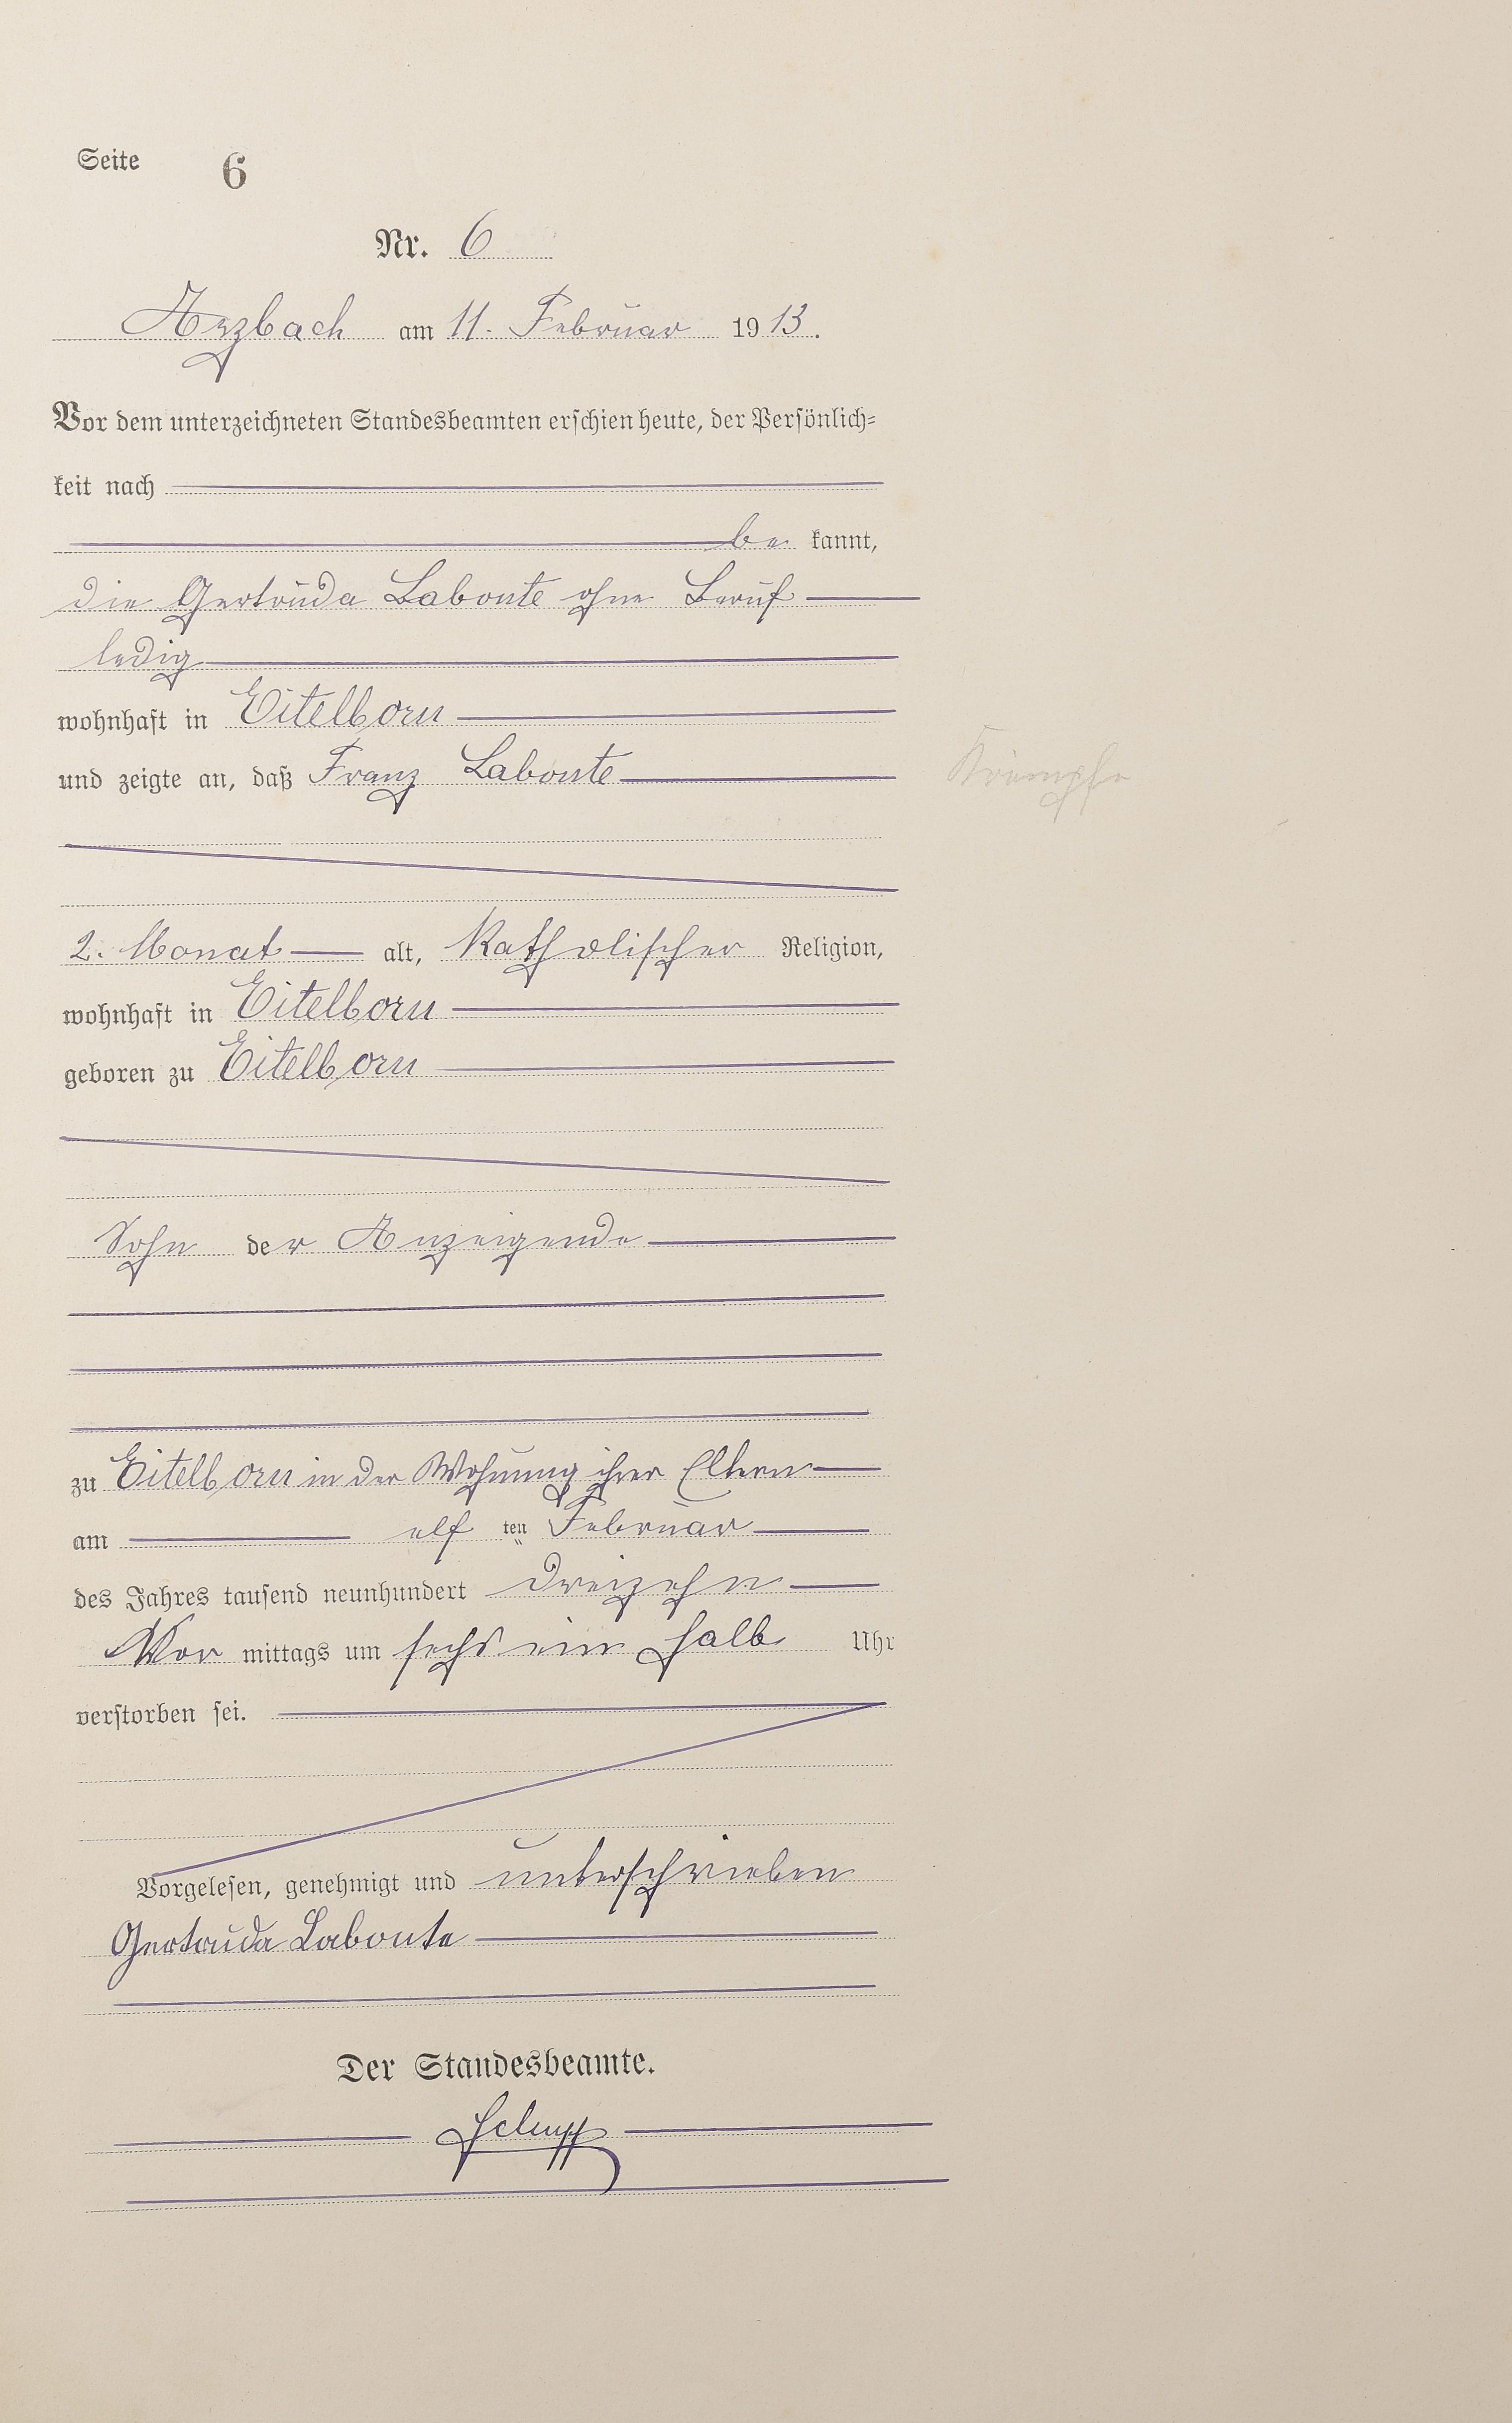 Seite 6
Nr. 6
Arzbach am 11. Februar 1913.
Vor dem unterzeichneten Standesbeamten erschien heute, der Persönlich-
keit nach
be kannt,
die Gertruda Labonte ohne Beruf
ledig
wohnhaft in Eitelborn
und zeigte an, daß Franz Labonte
Krämpfe
2. Monat alt, Katholischer Religion,
wohnhaft in Eitelborn
geboren zu Eitelborn
Sohn der Anzeigende
zu Eitelborn in der Wohnung ihrer Eltern
am elf ten Februar
des Jahres tausend neunhundert dreizehn
Vor mittags um sechs ein halb Uhr
verstorben sei.
Vorgelesen, genehmigt und unterschrieben
Gertruda Labonte
Der Standesbeamte.